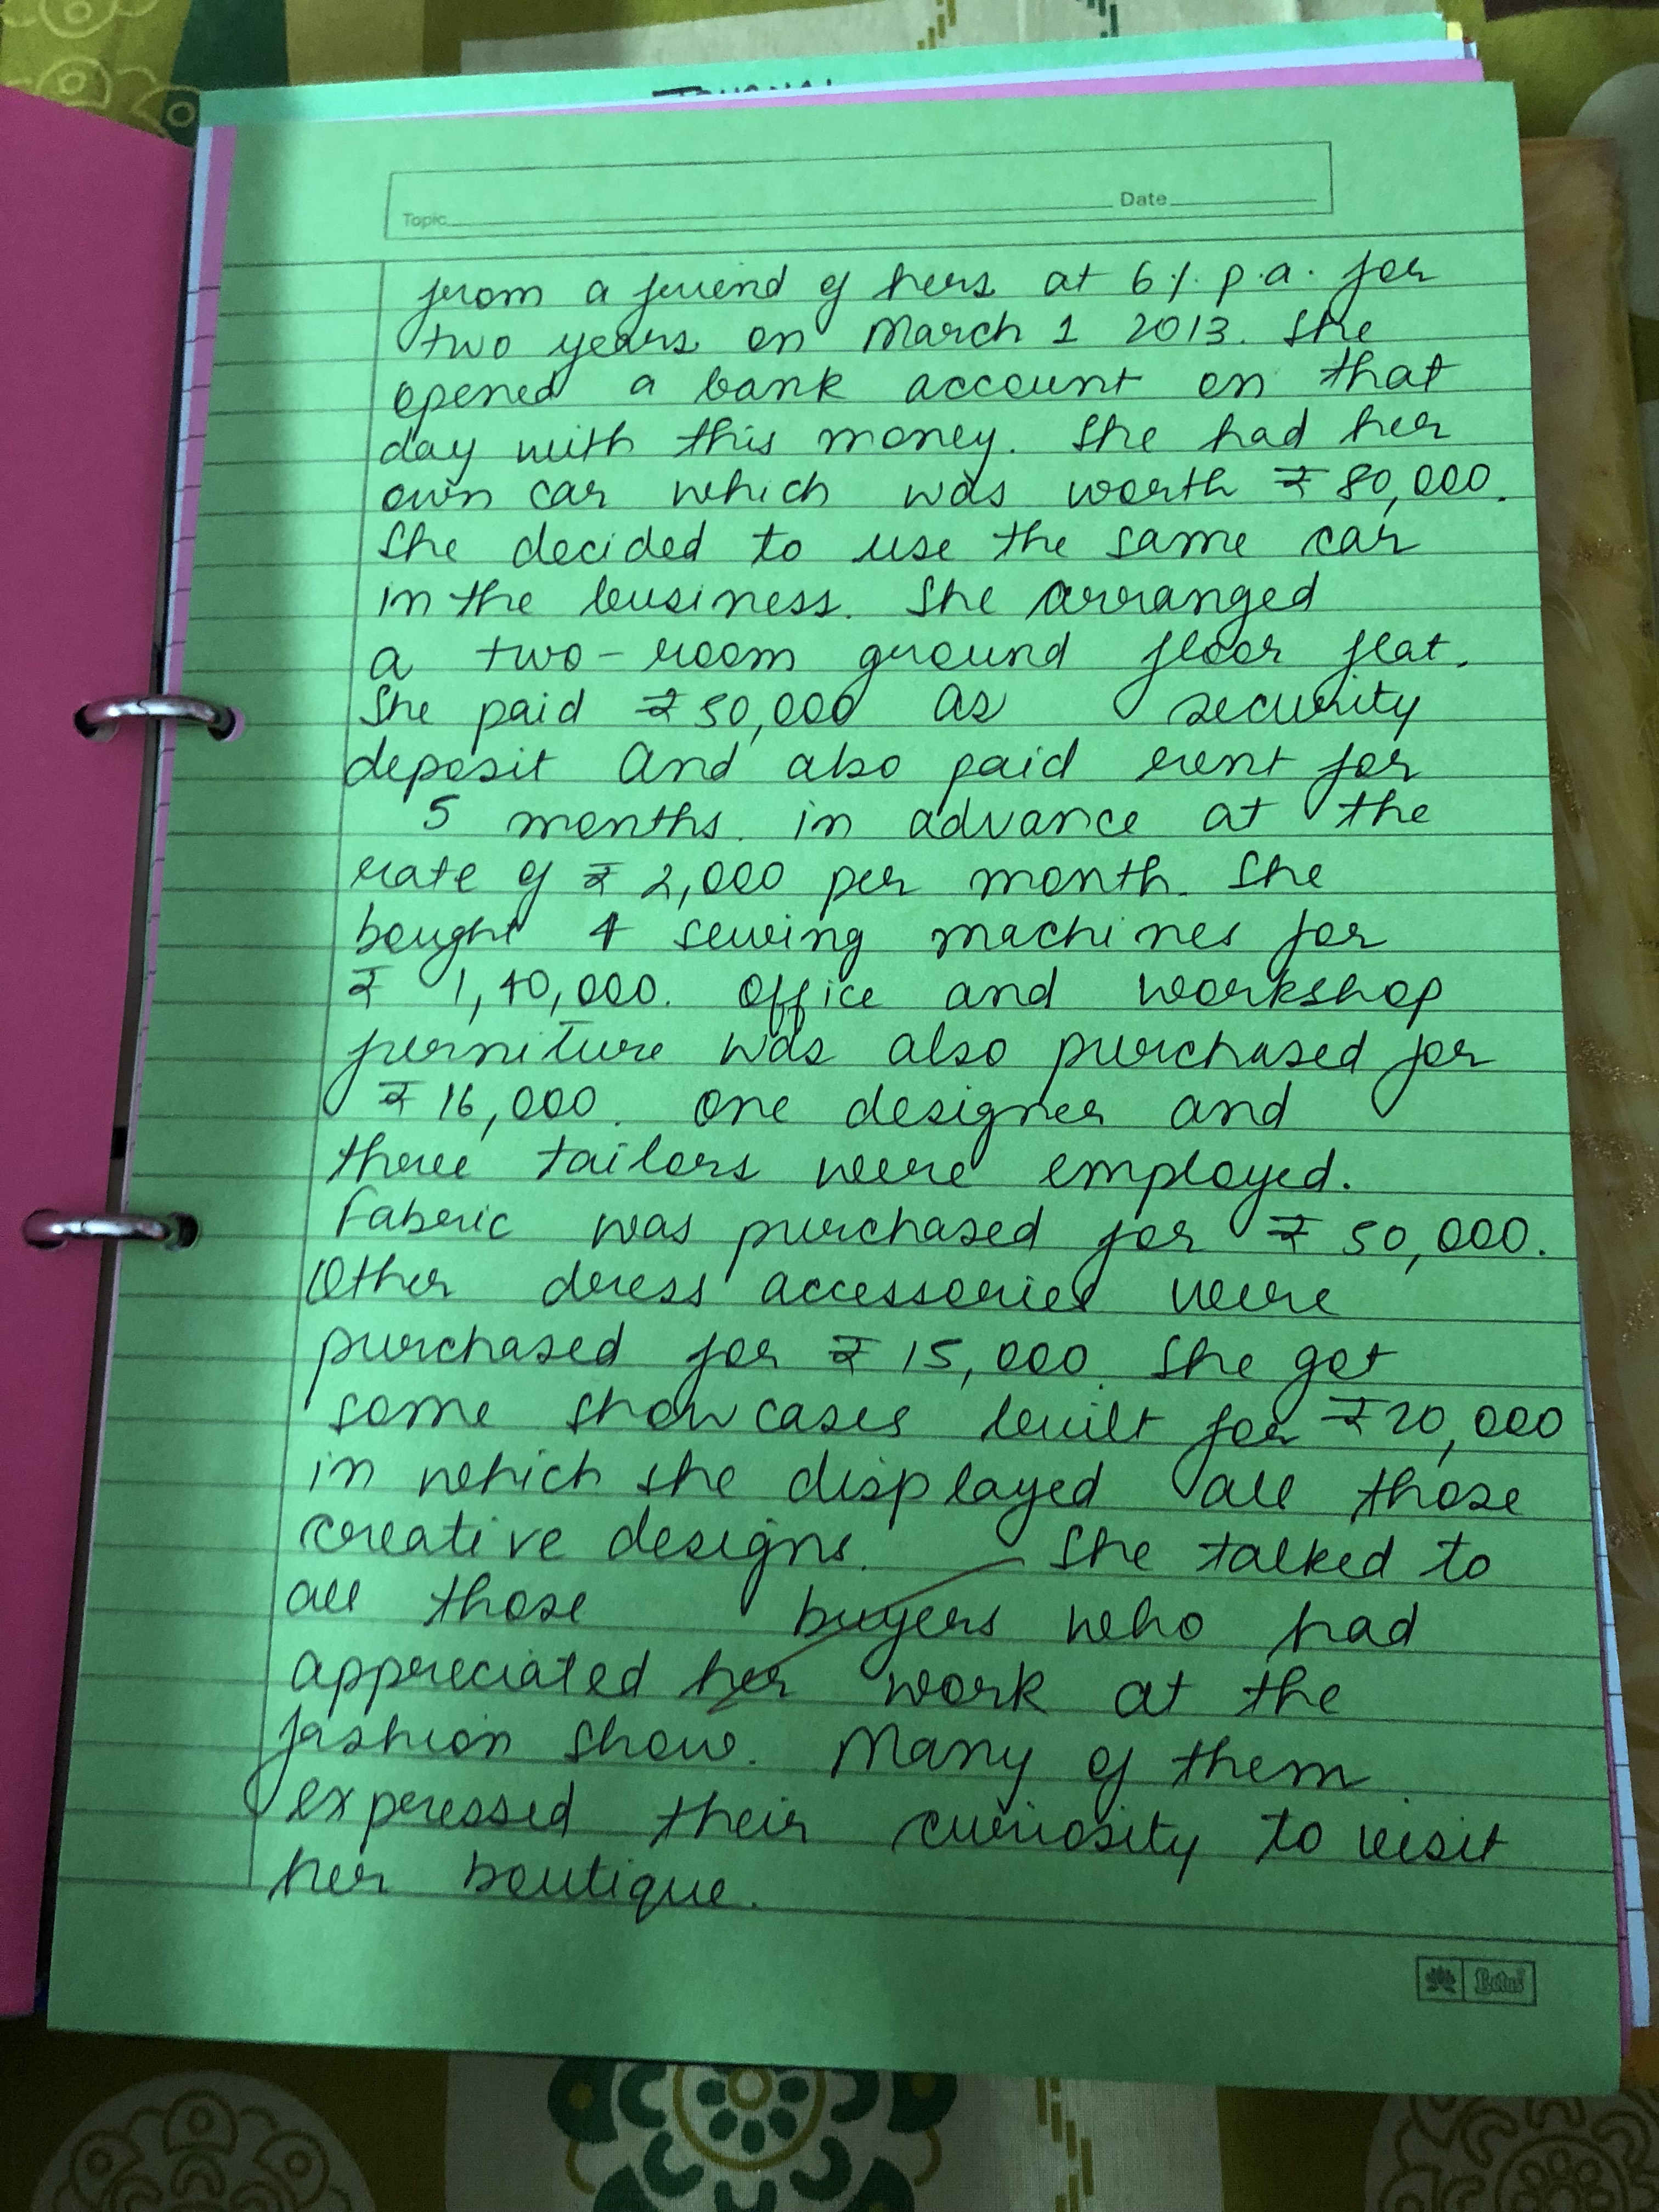 Topic Date
from a friend of hers at 6% p.a. for
two years on March 1 2013. She
opened a bank account on that
day with this money. She had her
own car which was worth ₹ 80,000.
She decided to use the same car
in the business. She arranged
a two-room ground floor flat.
She paid ₹ 50,000 as security
deposit and also paid rent for
5 months in advance at the
rate of ₹ 2,000 per month. She
bought 4 sewing machines for
₹ 1,40,000. Office and workshop
furniture was also purchased for
₹ 16,000. One designer and
three tailors were employed.
Fabric was purchased for ₹ 50,000.
Other dress accessories were
purchased for ₹ 15,000. She got
some showcases built for ₹ 20,000
in which she displayed all those
creative designs. She talked to
all those buyers who had
appreciated her work at the
fashion show. Many of them
expressed their curiosity to visit
her boutique.
Lotus